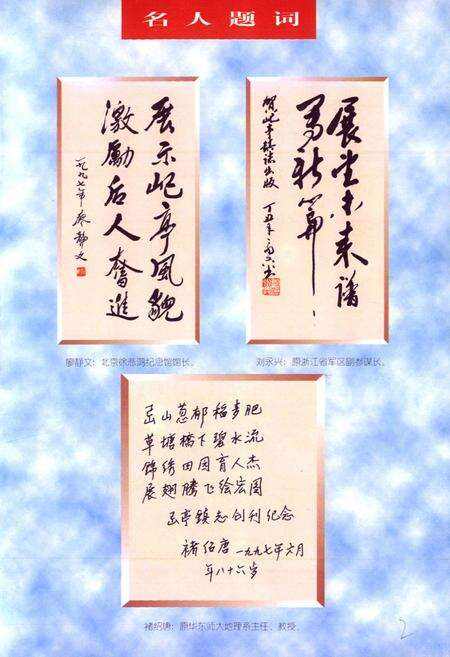 名人题词
展示屺亭風貌
激勵后人奮進
一九九七年 廖静文
展望未来譜
写新篇
贺屺亭镇志出版
丁丑年
廖静文：北京徐悲鸿纪念馆馆长。
刘永兴：原浙江省军区副参谋长。
屺山葱郁稻麦肥
草塘橋下碧水流
锦绣田园育人杰
展翅腾飞绘宏图
屺亭鎮志创刊纪念
褚绍唐 一九九七年六月
年八十六岁
褚绍唐：原华东师大地理系主任、教授。
2